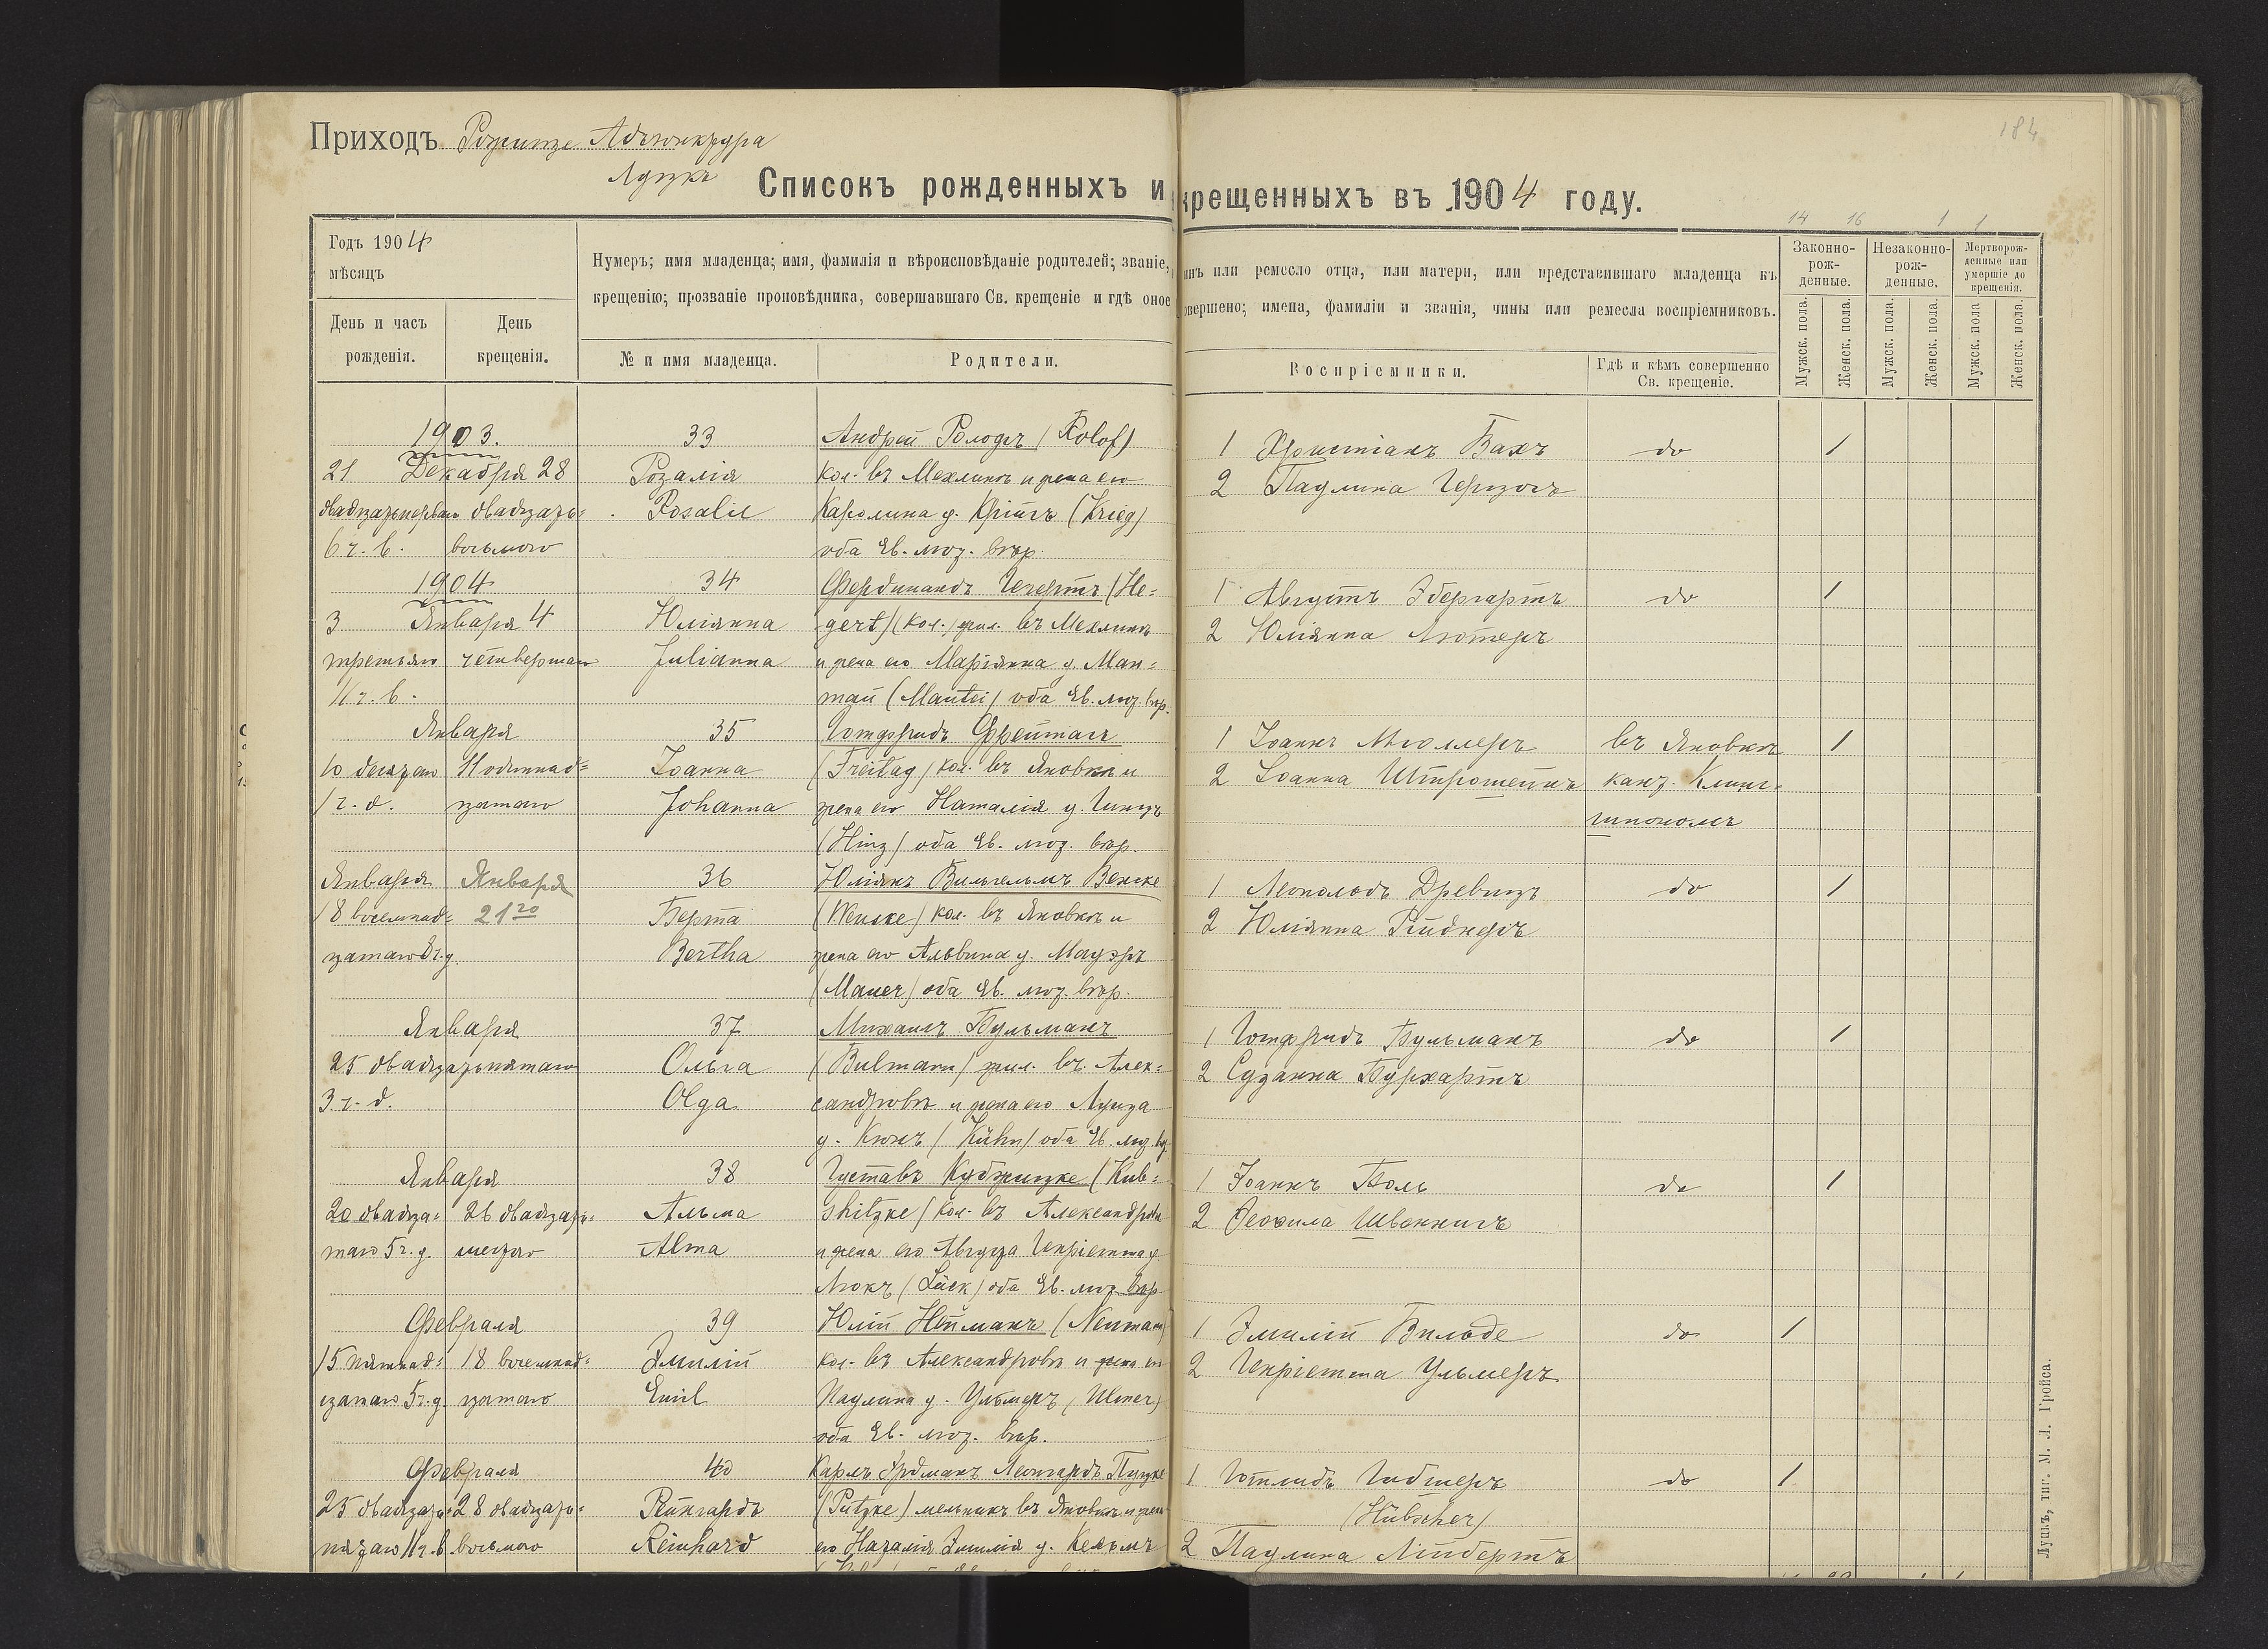 Приходъ Рожище Адъюнктура
Луцкъ
Списокъ рожденныхъ и крещенныхъ въ 1904 году.
184
14 16 1 1
Годъ 1904
мѣсяцъ
День и часъ рожденія.
День крещенія.
Нумеръ; имя младенца; имя, фамилія и вѣроисповѣданіе родителей; званіе, чинъ или ремесло отца, или матери, или представившаго младенца къ
крещенію; прозваніе проповѣдника, совершавшаго Св. крещеніе и гдѣ оное совершено; имена, фамиліи и званія, чины или ремесла воспріемниковъ.
№ и имя младенца.
Родители.
Воспріемники.
Гдѣ и кѣмъ совершено Св. крещеніе.
Законно-рожденные.
Незаконно-рожденные.
Мертворожденные или умершіе до крещенія.
Мужск. пола.
Женск. пола.
Мужск. пола.
Женск. пола.
Мужск. пола
Женск. пола.
1903.
21 Декабря 28
двадцатьперваго двадцать=
6 ч. в. восьмого
33
Розалія
Rosalie
Андрей Рологъ (Rolof)
кол. въ Мехлинѣ и жена его
Каролина у. Кригъ (Krieg)
оба Ев. лют. вѣр.
1 Христіанъ Бахъ
2 Паулина Герцогъ
do
1
1904
3 Января 4
третьяго четвертаго
11 ч. в.
34
Юліянна
Julianna
Фердинандъ Гегертъ (He=
gert) (кол.) жил. въ Мехлинѣ
и жена его Маріянна у. Ман=
тай (Mantei) оба Ев. лют. вѣр.
1 Августъ Эбергартъ
2 Юліянна Лютеръ
do
1
Января
10 десятаго 11 одиннад=
1 ч. д. цатаго
35
Іоанна
Johanna
Готфридъ Фрейтагъ
(Freitag) кол. въ Яновкѣ и
жена его Наталія у. Гинцъ
(Hinz) оба Ев. лют. вѣр.
1 Іоаннъ Мюллеръ
2 Іоанна Штрошейнъ
въ Яновкѣ
кант. Клинг=
шпономъ
1
Января Января
18 восемнад= 21го
цатаго 8 ч. д.
36
Берта
Bertha
Юліянъ Вильгельмъ Венске
(Wenske) кол. въ Яновкѣ и
жена его Альвина у. Мауэръ
(Mauer) оба Ев. лют. вѣр.
1 Леопольдъ Древицъ
2 Юліянна Рейднеръ
do
1
Января
25 двадцатьпятаго
3 ч. д.
37
Ольга
Olga
Михаилъ Бульманъ
(Bulmann) жил. въ Алек=
сандровѣ и жена его Луиза
у. Кюнъ (Kühn) оба Ев. лют. вѣр.
1 Готфридъ Бульманъ
2 Сузанна Бурхартъ
do
1
Января
20 двадца= 26 двадцать=
таго 5 ч. д. шестаго
38
Альма
Alma
Густавъ Кубжицке (Kub=
shitzke) кол. въ Александровѣ
и жена его Августа Генріетта у.
Люкъ (Lück) оба Ев. лют. вѣр.
1 Іоаннъ Боль
2 Теофила Шваннигъ
do
1
Февраля
15 пятнад= 18 восемнад=
цатаго 5 ч. д. цатаго
39
Эмилій
Emil
Юлій Нейманъ (Neumann)
кол. въ Александровѣ и жена его
Паулина у. Ульмеръ (Ulmer)
оба Ев. лют. вѣр.
1 Эмилій Вильде
2 Генріетта Ульмеръ
do
1
Февраля
25 двадцать 28 двадцать=
пятаго 11 ч. в. восьмого
40
Рейнгардъ
Reinhard
Карлъ Эрдманъ Леонгардъ Путцке
(Putzke) мельникъ въ Яновкѣ и жена
его Наталія Эмилія у. Кельмъ
1 Готлибъ Гибшеръ
(Hübscher)
2 Паулина Лейбертъ
do
1
Луцкъ, тип. М. Л. Гройса.